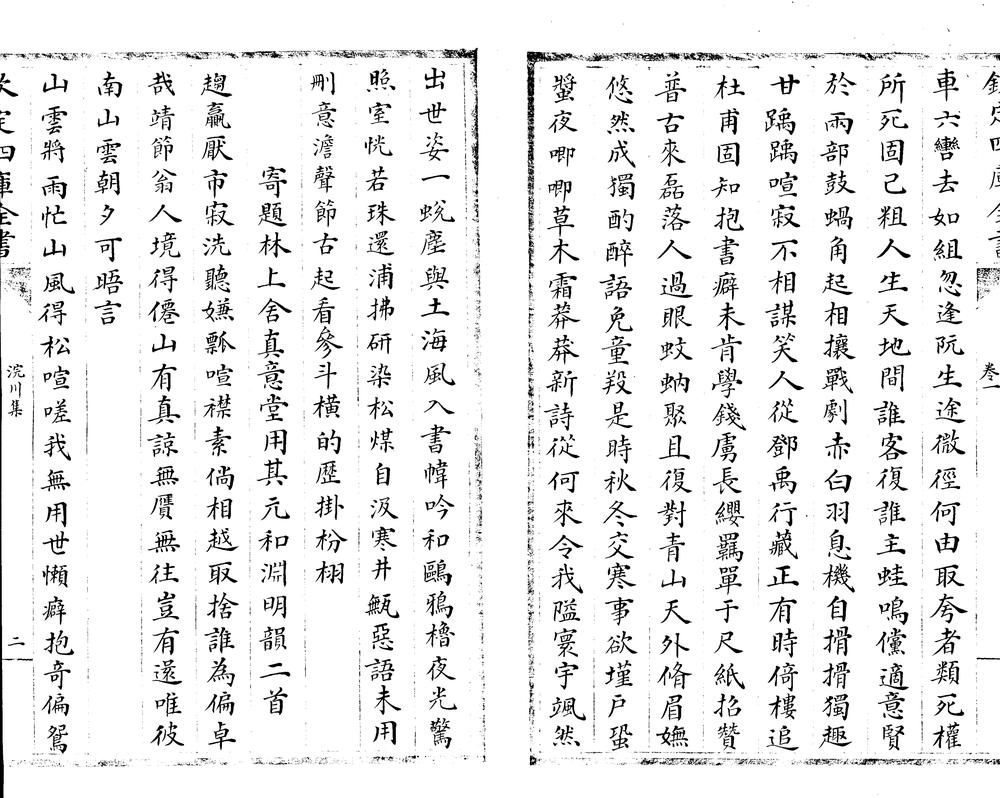 欽定四庫全書
卷一
車六轡去如組忽逢阮生途微徑何由取夸者類死權
所死固已粗人生天地間誰客復誰主蛙鳴儻適意賢
於兩部鼓蝸角起相攘戰劇赤白羽息機自搰搰獨趣
甘踽踽喧寂不相謀笑人從鄧禹行藏正有時倚樓追
杜甫固知抱書癖未肯學錢虜長纓羈單于尺紙招贊
普古來磊落人過眼蚊蚋聚且復對青山天外脩眉嫵
悠然成獨酌醉語免童羖是時秋冬交寒事欲墐戶蛩
螿夜唧唧草木霜莽莽新詩從何來令我隘寰宇颯然
出世姿一蛻塵與土海風入書幃吟和鷗鴉櫓夜光驚
照室恍若珠還浦拂研染松煤自汲寒井甒惡語未用
刪意澹聲節古起看參斗橫的歷掛枌栩
寄題林上舍真意堂用其元和淵明韻二首
趨贏厭市寂洗聽嫌瓢喧襟素倘相越取捨誰為偏卓
哉靖節翁人境得僊山有真諒無贋無往豈有還唯彼
南山雲朝夕可晤言
山雲將雨忙山風得松喧嗟我無用世懶癖抱奇偏鴛
欽定四庫全書
浣川集
二